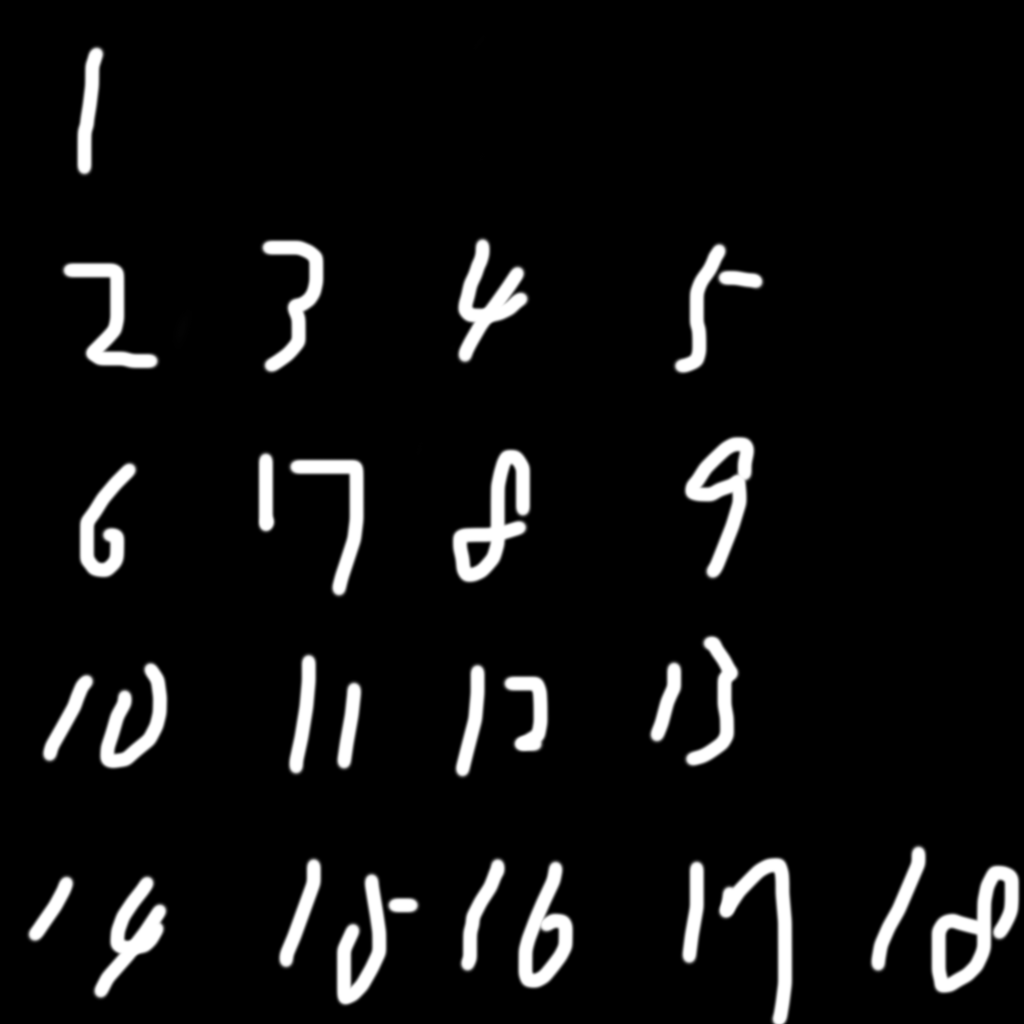 1
2 3 4 5
6 17 8 9
10 11 12 13
14 15 16 17 18